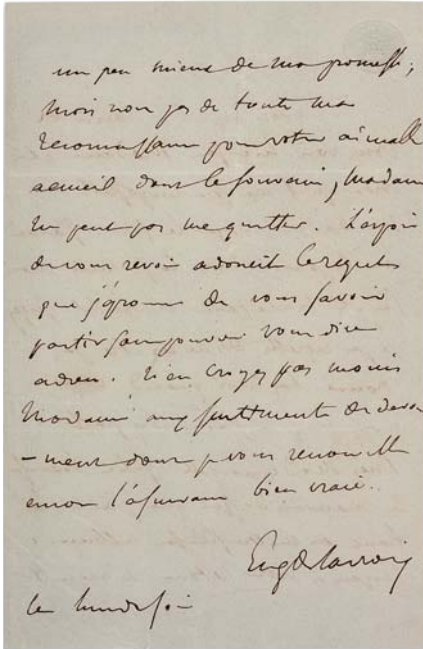 un peu mieux de ma promesse ;
mais non pas de toute ma
reconnaissance pour votre aimable
accueil dont le souvenir, Madame
ne peut pas me quitter. L'espoir
de vous revoir adoucit le regret
que j'éprouve de vous savoir
partir sans pouvoir vous dire
adieu. N'en croyez pas moins
Madame aux sentiments de dévou
-ment dont je vous renouvelle
encor l'assurance bien vraie.
Eug Delacroix
ce lundi soir